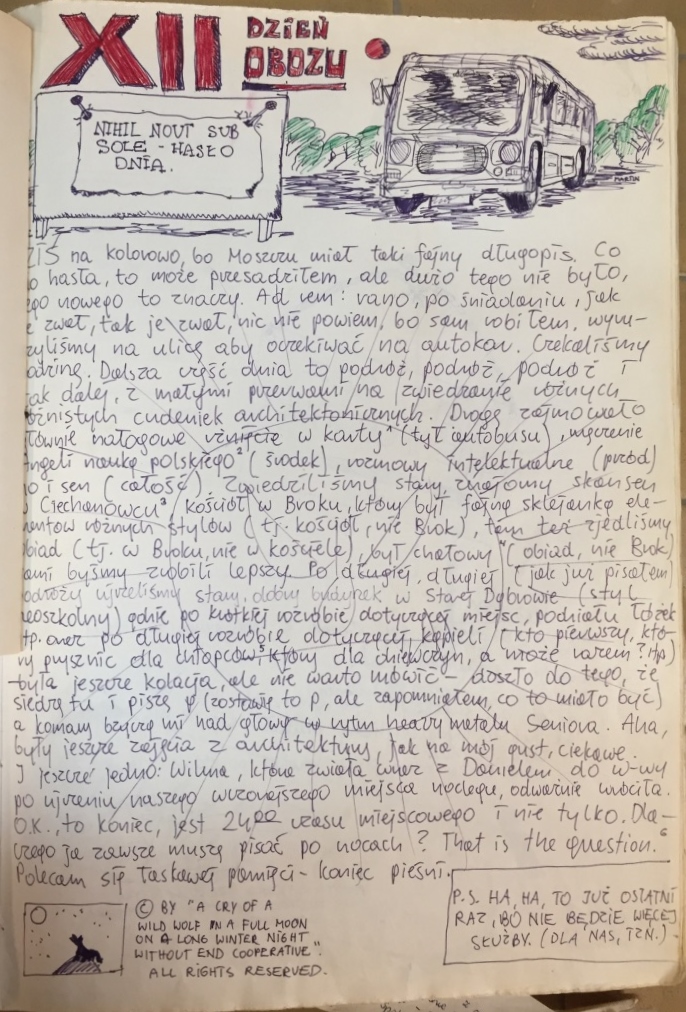 XII DZIEŃ
OBOZU
NIHIL NOVI SUB
SOLE - HASŁO
DNIA.
MARTIN
ZIŚ na kolorowo, bo Moszczu miał taki fajny długopis. Co
o hasła, to może przesadziłem, ale dużo tego nie było,
ego nowego to znaczy. Ad rem: rano, po śniadaniu, jak
e zwał, tak je zwał, nic nie powiem, bo sam robiłem, wyru-
szyliśmy na ulicę aby oczekiwać na autokar. Czekaliśmy
odzinę. Dalsza część dnia to podróż, podróż, podróż i
ak dalej, z małymi przerwami na zwiedzanie różnych
óżnistych cudeniek architektonicznych. Drogę zajmowało
łównie nałogowe rżnięcie w karty¹ (tył autobusu), męczenie
Angeli nauką polskiego² (środek), rozmowy intelektualne (przód)
no i sen (całość). Zwiedziliśmy stary, znajomy skansen
w Ciechanowcu³, kościół w Broku, który był fajną sklejanką ele-
mentów różnych stylów (tj. kościół, nie Brok), tam też zjedliśmy
obiad (tj. w Broku, nie w kościele), był chałowy⁴ (obiad, nie Brok)
sami byśmy zrobili lepszy. Po długiej, długiej (jak już pisałem)
podróży ujrzeliśmy stary, dobry budynek w Starej Dąbrowie (styl
neoszkolny) gdzie po krótkiej rozróbie dotyczącej miejsc, podziału łóżek
itp. oraz po długiej rozróbie dotyczącej kąpieli (kto pierwszy, któ-
ry prysznic dla chłopców⁵, który dla dziewczyn, a może razem? itp)
była jeszcze kolacja, ale nie warto mówić - doszło do tego, że
siedzę tu i piszę φ (zostawię to p, ale zapomniałem, co to miało być)
a komary bzyczą mi nad głową w rytm heavy metalu Seniora. Aha,
były jeszcze zajęcia z architektury, jak na mój gust, ciekawe.
I jeszcze jedno: Wilma, która zwiała wraz z Danielem do W-wy
po ujrzeniu naszego wczorajszego miejsca noclegu, odważnie wróciła.
O.K., to koniec, jest 24⁰⁰ czasu miejscowego i nie tylko. Dla-
czego ja zawsze muszę pisać po nocach? That is the question.⁶
Polecam się łaskawej pamięci - koniec pieśni.
© BY "A CRY OF A
WILD WOLF IN A FULL MOON
ON A LONG WINTER NIGHT
WITHOUT END COOPERATIVE".
ALL RIGHTS RESERVED.
P.S. HA, HA, TO JUŻ OSTATNI
RAZ, BO NIE BĘDZIE WIĘCEJ
SŁUŻBY. (DLA NAS, TZN.)